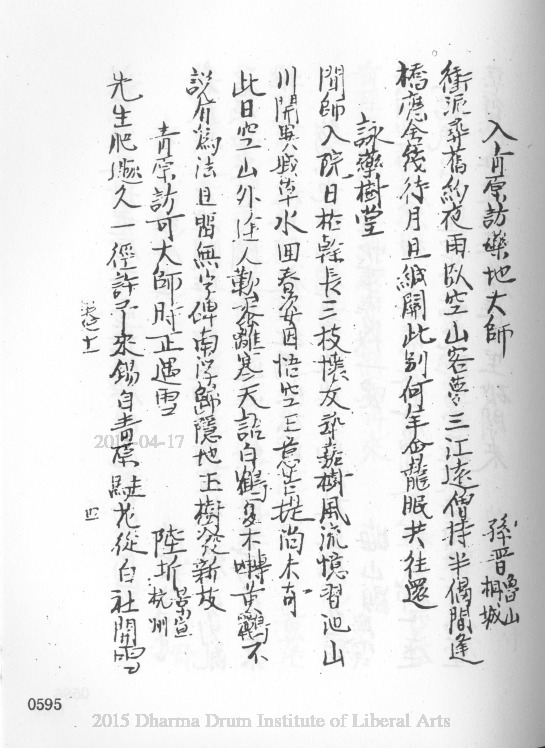 入青原訪藥地大師
孫晉魯山桐城
衝泥尋舊約夜雨臥空山客夢三江遠僧持半偈閒逢
橋應舍筏待月且緘關此別何年會龍眠共往還
詠藥樹堂
聞師入院日枯幹長三枝懷友恭嘉樹風流憶習池山
川開異域草水田春姿因悟空王意菩提尚未奇
此日空山外途人歎黍離寒天語白鶴喬木囀黃鸝不
說有為法且留無字碑南溪歸隱地玉樹發新枝
青原訪可大師時正遇雪
陸圻景宣杭州
先生肥遯久一徑許予來錫自青原駐花從白社開雪
卷之十一
四
2015-04-17
0595
2015 Dharma Drum Institute of Liberal Arts